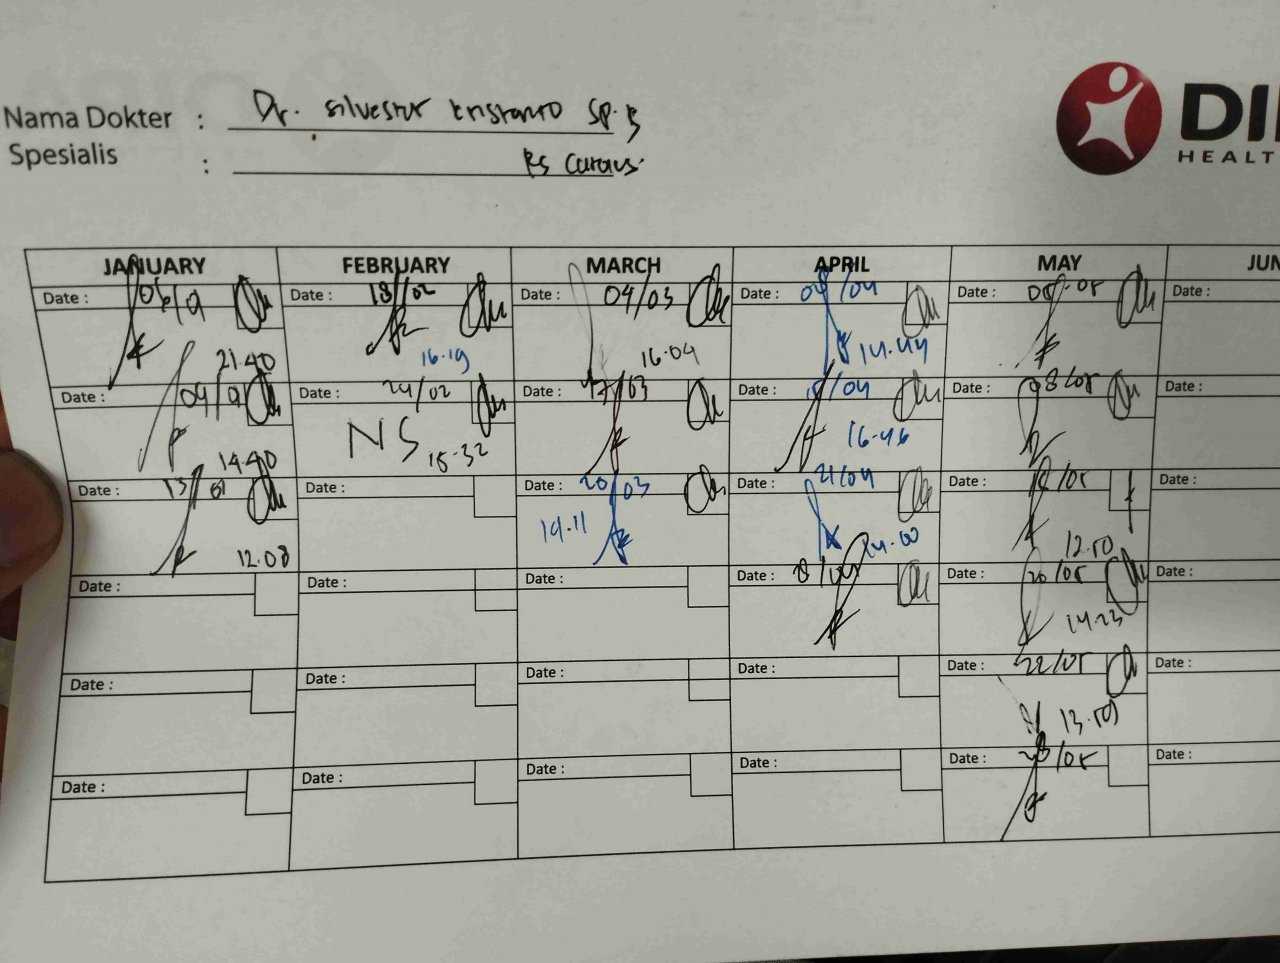 Nama Dokter : Dr. silvester tristanto sp. B
Spesialis : RS Carolus
DI
HEALT
JANUARY FEBRUARY MARCH APRIL MAY JUN
Date : 06/ Date : 18/02 Date : 04/03 Date : /04 Date : 05.05 Date :
21.40 16.19 16.04 14.44
Date : 09/ Date : 24/02 Date : 17/03 Date : /04 Date : 08/05 Date :
14.40 NS 15.32 16.46
Date : 13/ Date : Date : 20/03 Date : 21/04 Date : /05 Date :
12.08 14.11 14.00 12.50
Date : Date : Date : Date : /04 Date : 20/05 Date :
14.23
Date : Date : Date : Date : Date : 22/05 Date :
13.59
Date : Date : Date : Date : Date : 28/05 Date :